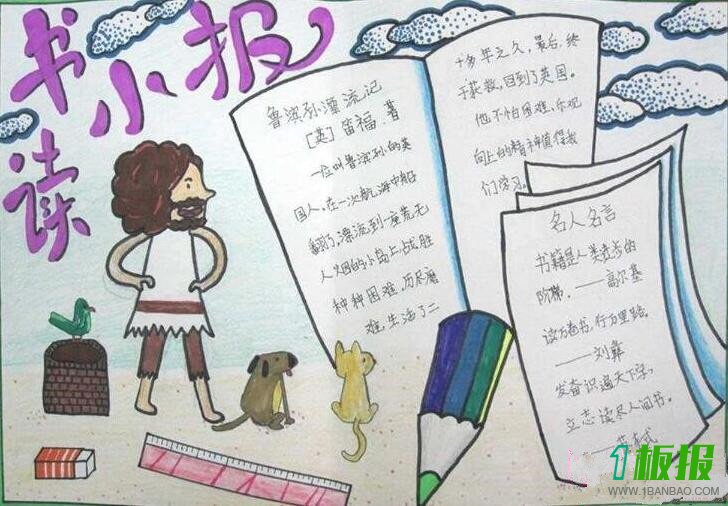 读书小报
鲁滨孙漂流记
[英]笛福·著
一位叫鲁滨孙的英
国人,在一次航海中船
翻了,漂流到一座荒无
人烟的小岛上,战胜
种种困难,历尽磨
难,生活了二
十多年之久,最后,终
于获救,回到了英国。
他不怕困难、乐观
向上的精神值得我
们学习。
名人名言
书籍是人类进步的
阶梯。——高尔基
读万卷书,行万里路。
——刘彝
发奋识遍天下字,
立志读尽人间书。
——苏轼
1板报
WWW.1BANBAO.COM